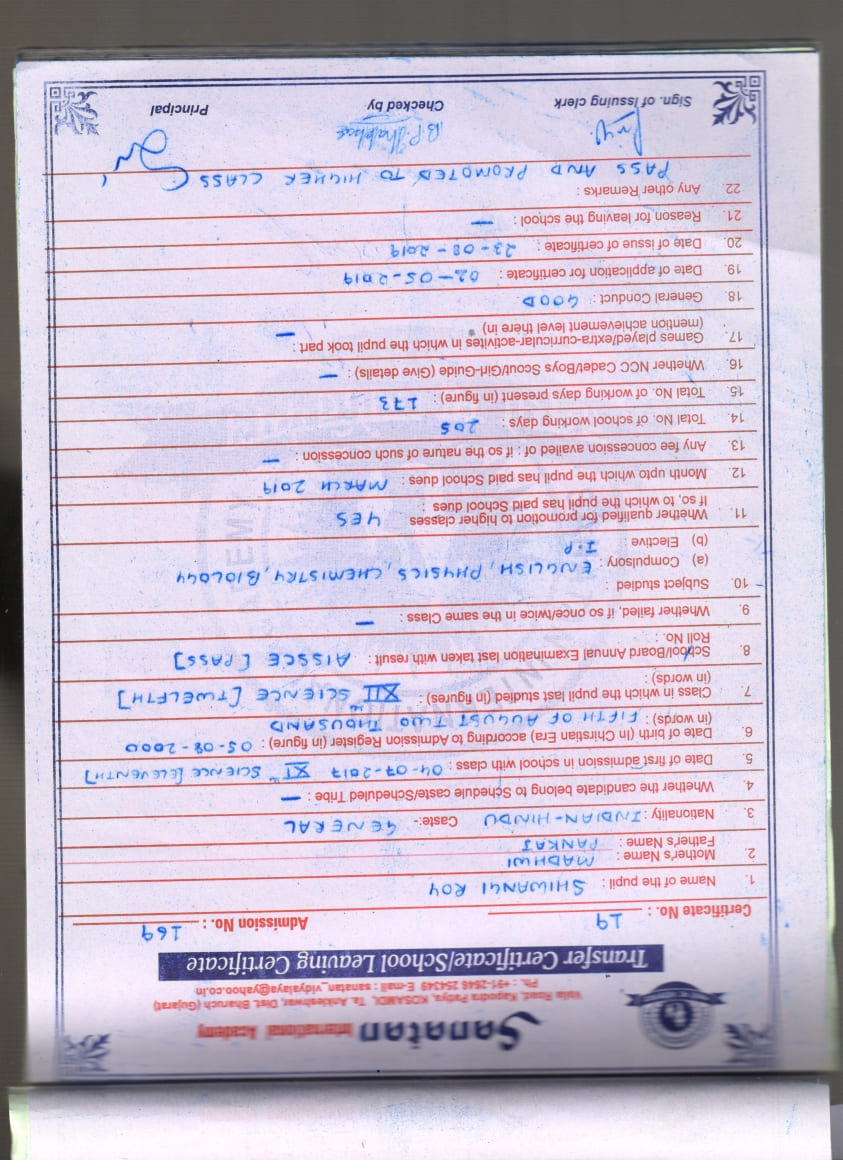 Sanatan International Academy
Valia Road, Kapodra Patiya, KOSAMDI, Ta. Ankleshwar, Dist. Bharuch (Gujarat)
Ph.: +91-2646 254349 E-mail : sanatan_vidyalaya@yahoo.co.in
Transfer Certificate/School Leaving Certificate
Certificate No. : 19 Admission No. : 169
1. Name of the pupil : SHIWANGI ROY
2. Mother's Name : MADHWI
Father's Name : PANKAJ
3. Nationality : INDIAN-HINDU Caste:- GENERAL
4. Whether the candidate belong to Schedule caste/Scheduled Tribe : —
5. Date of first admission in school with class : 04-07-2017 XIth SCIENCE [ELEVENTH]
6. Date of birth (In Chirstian Era) according to Admission Register (in figure) : 05-08-2000
(in words) : FIFTH OF AUGUST TWO THOUSAND
7. Class in which the pupil last studied (in figures) : XIIth SCIENCE [TWELFTH]
(in words) :
8. School/Board Annual Examination last taken with result : AISSCE [PASS]
Roll No. :
9. Whether failed, if so once/twice in the same Class : —
10. Subject studied :
(a) Compulsory : ENGLISH, PHYSICS, CHEMISTRY, BIOLOGY
(b) Elective : I.P
11. Whether qualified for promotion to higher classes YES
If so, to which the pupil has paid School dues :
12. Month upto which the pupil has paid School dues : MARCH 2019
13. Any fee concession availed of : if so the nature of such concession : —
14. Total No. of school working days : 205
15. Total No. of working days present (in figure) : 173
16. Whether NCC Cadet/Boys Scout/Girl-Guide (Give details) : —
17. Games played/extra-curricular-activites in which the pupil took part : —
(mention achievement level there in)
18. General Conduct : GOOD
19. Date of application for certificate : 02-05-2019
20. Date of issue of certificate : 23-08-2019
21. Reason for leaving the school : —
22. Any other Remarks :
PASS AND PROMOTED TO HIGHER CLASS
Sign. of. Issuing clerk Checked by Principal